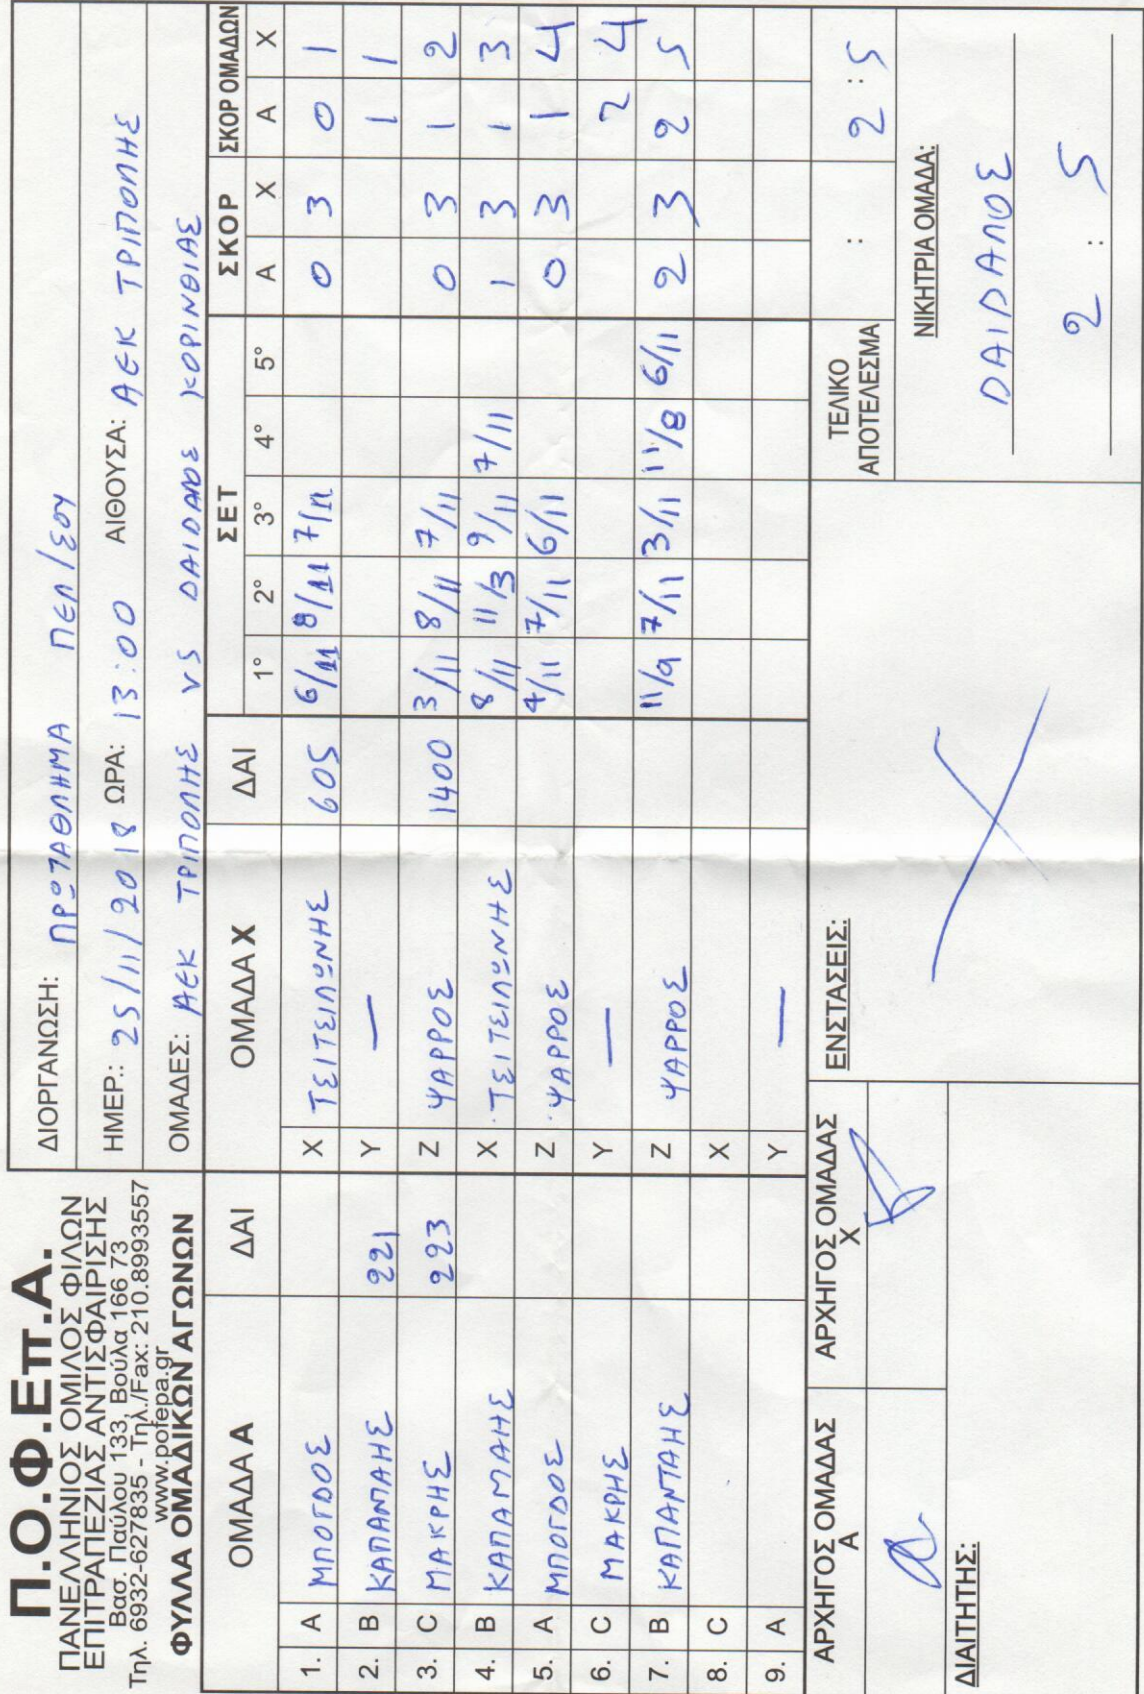 Π.Ο.Φ.Επ.Α.
ΠΑΝΕΛΛΗΝΙΟΣ ΟΜΙΛΟΣ ΦΙΛΩΝ
ΕΠΙΤΡΑΠΕΖΙΑΣ ΑΝΤΙΣΦΑΙΡΙΣΗΣ
Βασ. Παύλου 133, Βούλα 166 73
Τηλ. 6932-627835 - Τηλ./Fax: 210.8993557
www.pofepa.gr
ΦΥΛΛΑ ΟΜΑΔΙΚΩΝ ΑΓΩΝΩΝ
ΔΙΟΡΓΑΝΩΣΗ: ΠΡΩΤΑΘΛΗΜΑ ΠΕΛ/ΣΟΥ
ΗΜΕΡ.: 25/11/2018 ΩΡΑ: 13:00 ΑΙΘΟΥΣΑ: ΑΕΚ ΤΡΙΠΟΛΗΣ
ΟΜΑΔΕΣ: ΑΕΚ ΤΡΙΠΟΛΗΣ VS ΔΑΙΔΑΛΟΣ ΚΟΡΙΝΘΙΑΣ
ΟΜΑΔΑ Α ΔΑΙ ΟΜΑΔΑ Χ ΔΑΙ ΣΕΤ ΣΚΟΡ ΣΚΟΡ ΟΜΑΔΩΝ
1° 2° 3° 4° 5° Α Χ Α Χ
1. Α ΜΠΟΓΔΟΣ Χ ΤΣΙΤΣΙΛΩΝΗΣ 605 6/11 8/11 7/11 0 3 0 1
2. Β ΚΑΠΑΝΤΑΗΣ 221 Υ — 1 1
3. C ΜΑΚΡΗΣ 223 Ζ ΨΑΡΡΟΣ 1400 3/11 8/11 7/11 0 3 1 2
4. Β ΚΑΠΑΝΤΑΗΣ Χ ΤΣΙΤΣΙΛΩΝΗΣ 8/11 11/3 9/11 7/11 1 3 1 3
5. Α ΜΠΟΓΔΟΣ Ζ ΨΑΡΡΟΣ 4/11 7/11 6/11 0 3 1 4
6. C ΜΑΚΡΗΣ Υ — 2 4
7. Β ΚΑΠΑΝΤΑΗΣ Ζ ΨΑΡΡΟΣ 11/9 7/11 3/11 11/8 6/11 2 3 2 5
8. C Χ
9. Α Υ —
ΑΡΧΗΓΟΣ ΟΜΑΔΑΣ Α
ΑΡΧΗΓΟΣ ΟΜΑΔΑΣ Χ
ΔΙΑΙΤΗΤΗΣ:
ΕΝΣΤΑΣΕΙΣ:
ΤΕΛΙΚΟ ΑΠΟΤΕΛΕΣΜΑ : 2 : 5
ΝΙΚΗΤΡΙΑ ΟΜΑΔΑ:
ΔΑΙΔΑΛΟΣ
2 : 5